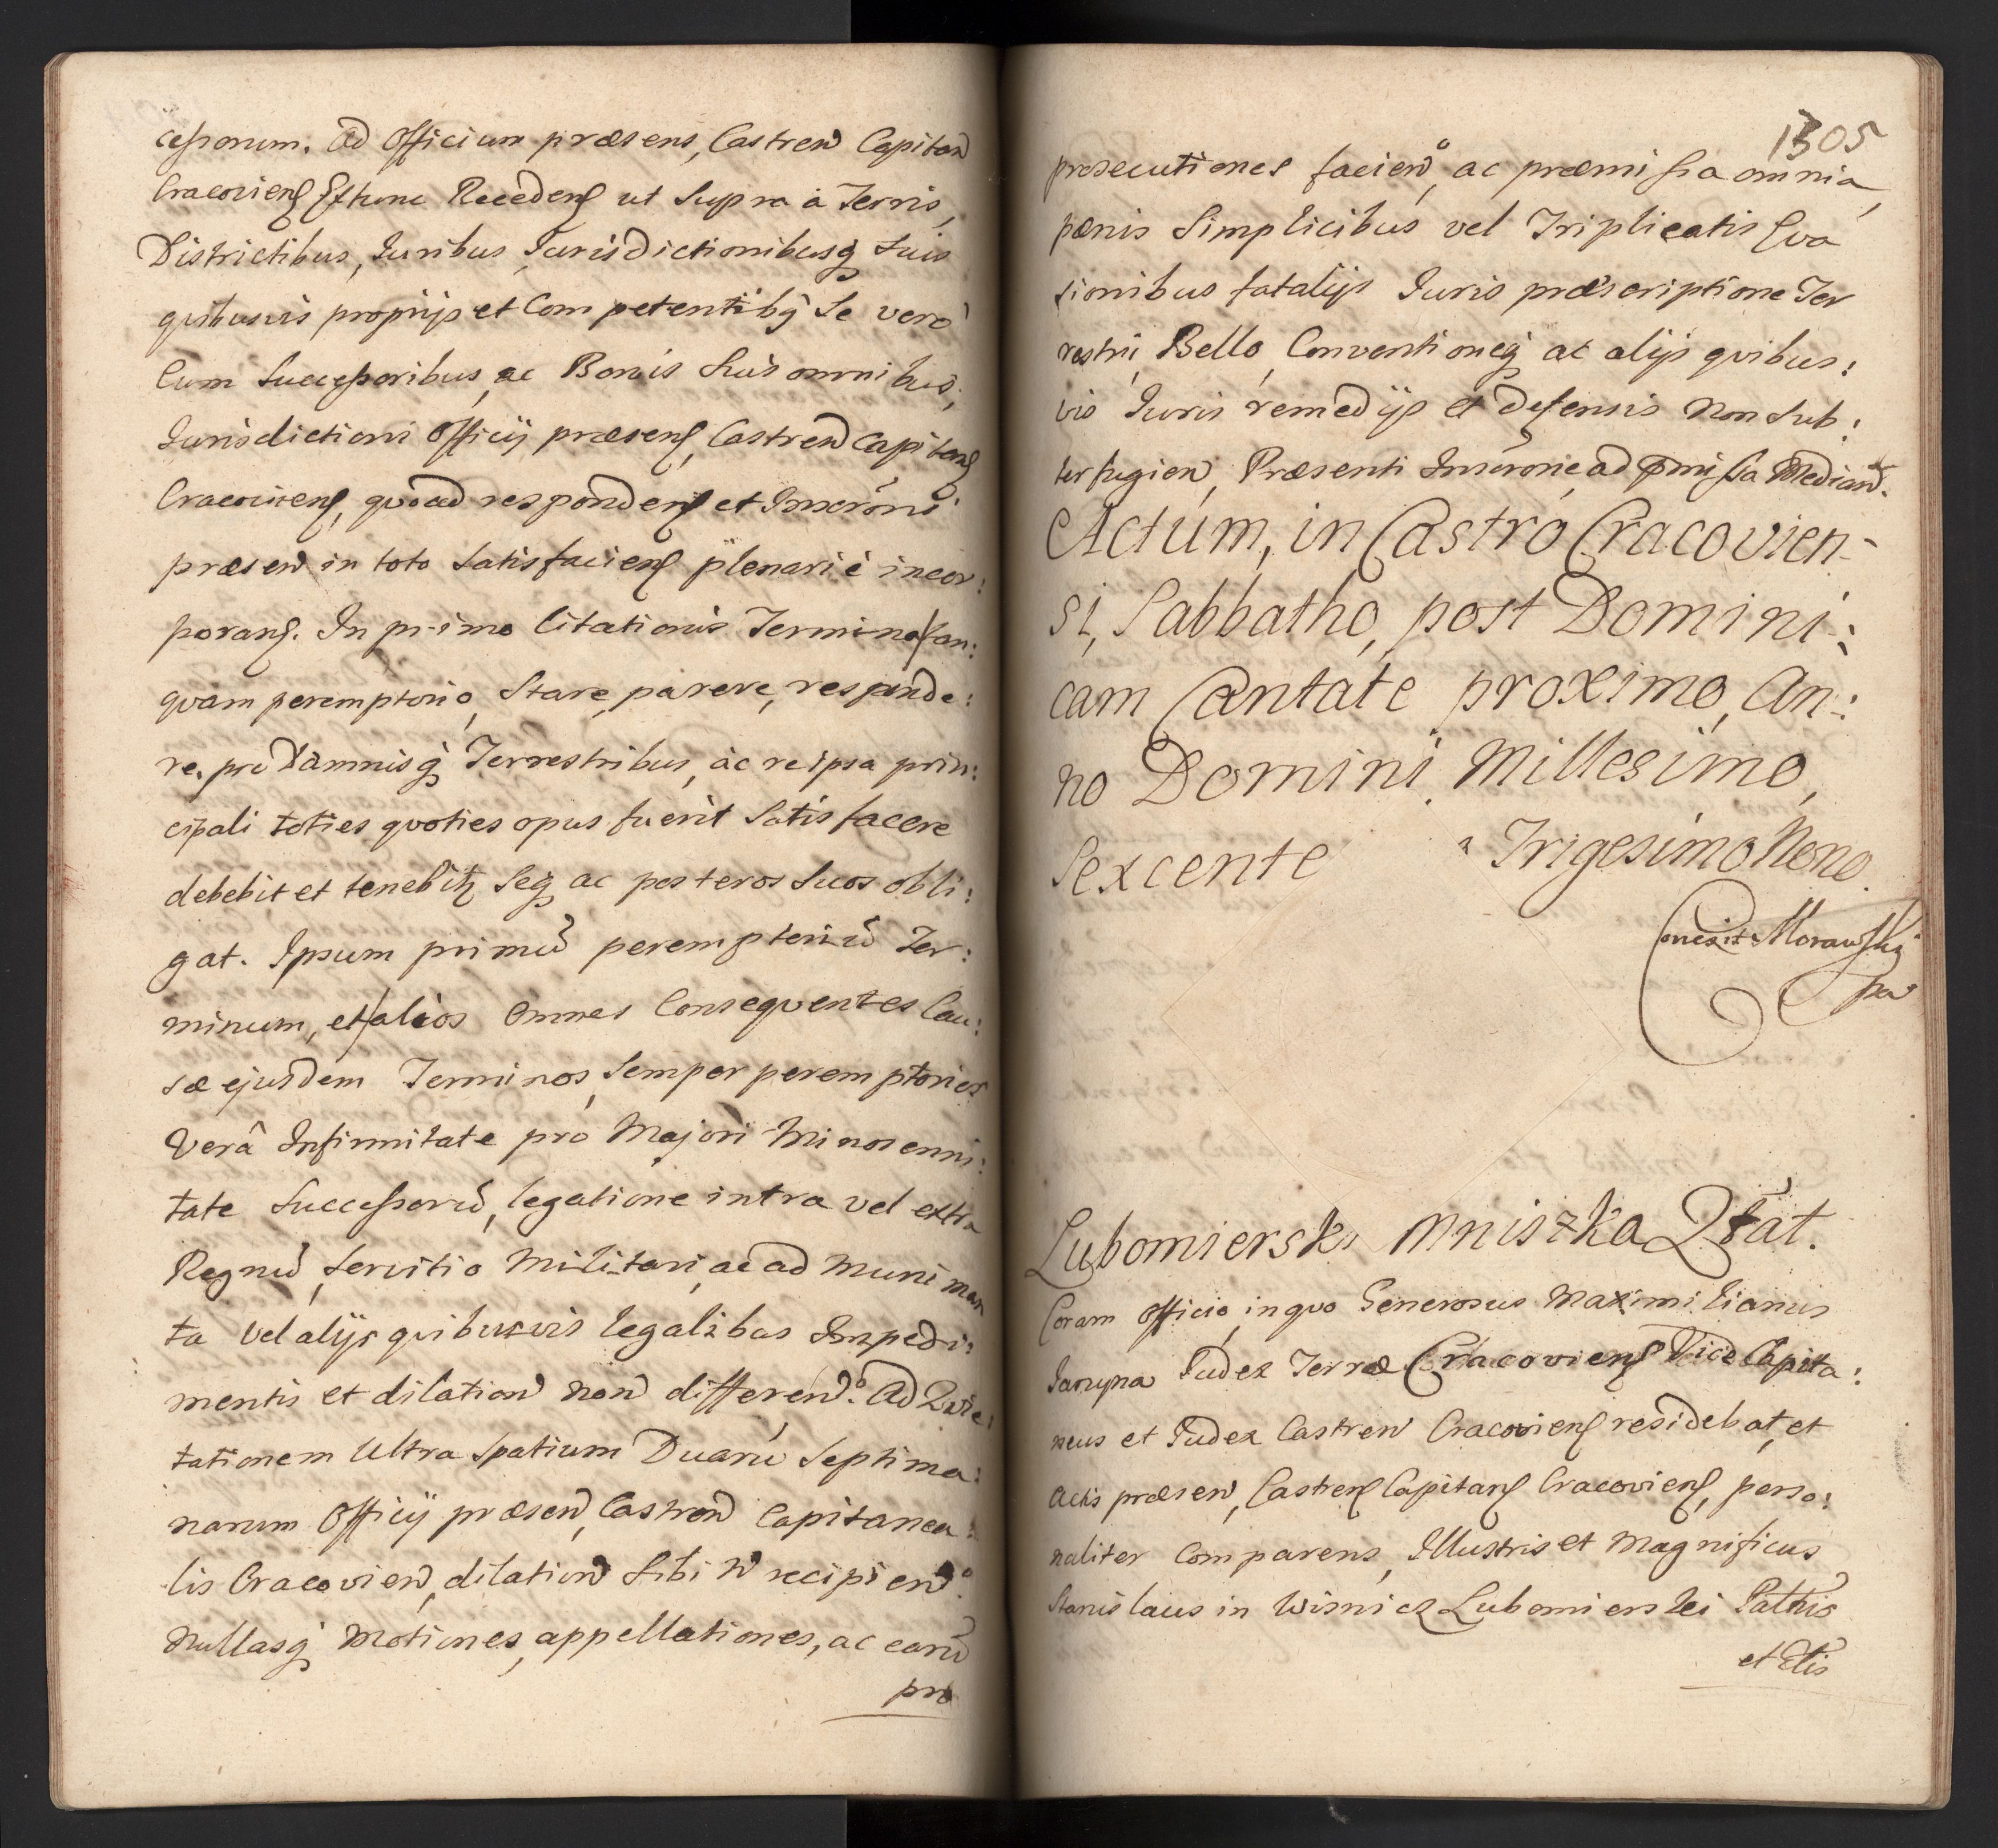 cessorum. Ad Officium præsens, Castren Capitan
Cracoviens Extunc Recedens ut Supra à Terris,
Districtibus, Juribus, Jurisdictionibusq, Suis
quibusvis proprijs et Competentibq Se vero
Cum Successoribus, ac Bonis Suis omnibus,
Jurisdictioni Officij præsens, Castren Capitans
Cracoviens, quoad respondens et Inscroni
præsen in toto Satisfaciens plenariè incor:
porans. In primo Citationis Termino tan:
quam peremptorio, Stare, parere, responde:
re, pro Damnisq Terrestribus, ac re ipsa prin:
cipali toties quoties opus fuerit Satisfacere
debebit et tenebitz Seq ac posteros Suos obli:
gat. Ipsum primu peremptoriu Ter:
minum, et alios Omnes Consequentes Cau:
sæ ejusdem Terminos, Semper peremptorios
Verâ Infirmitate pro Majori Minorenni:
tate Successoru, legatione intra vel extra
Regnu, Servitio Militari, ac ad Munimen
ta vel alijs quibusvis legalibus Impedi:
mentis et dilation non differen.º Ad Quie:
tationem Ultra Spatium Duaru Septima:
narum Officij præsen, Castren Capitanea:
lis Cracovien, dilation Sibi n recipien.º
Nullasq Motiones, appellationes, ac earu
pro
1305
prosecutiones facienº, ac præmissa omnia,
pœnis Simplicibus vel Triplicatis Eva
sionibus fatalijs Juris præscriptione Ter
restri, Bello, Conventioneq ac alijs quibus:
vis Juris remedijs et defensis non Sub:
terfugien, Præsenti Inscrone ad pmissa Median.
Actum, in Castro Cracovien-
si, Sabbatho, post Domini:
cam Cantate proximo, An:
no Domini Millesimo,
Sexcente Trigesimo Nono.
Conexit Morawsky
Lubomierski Mniszka Qtat.
Coram Officio, in quo Generosus Maximilianus
Jaruna Judex Terræ Cracoviens Vice Capita:
neus et Judex Castren Cracoviens residebat, et
Actis præsen, Castrens Capitans Cracoviens, perso:
naliter Comparens, Illustris et Magnificus
Stanislaus in Wisnicz Lubomierskei Pattis
et Etis